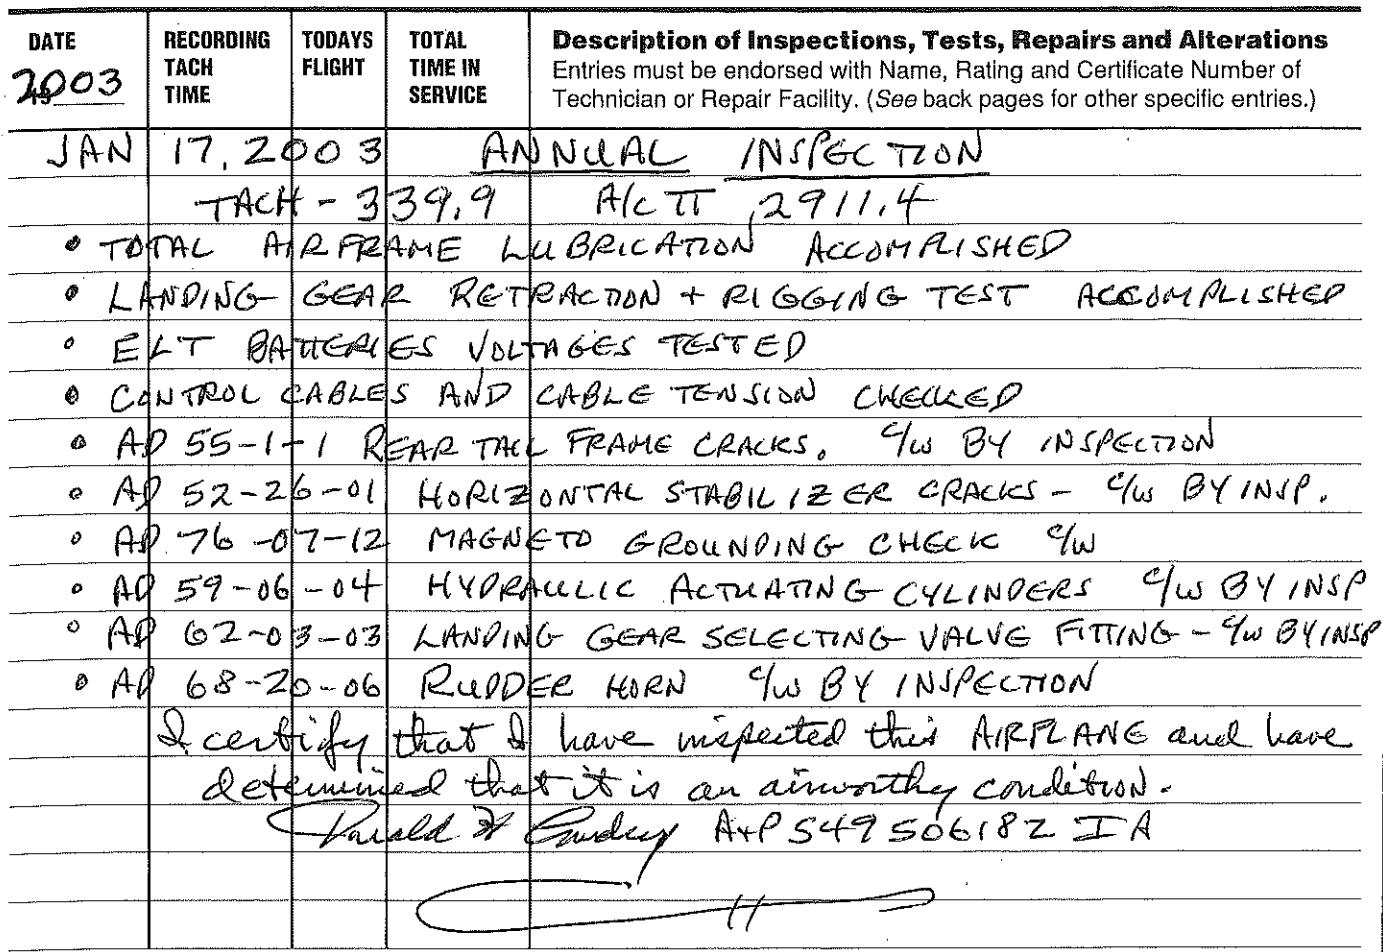 DATE RECORDING TODAYS TOTAL Description of Inspections, Tests, Repairs and Alterations
2003 TACH FLIGHT TIME IN Entries must be endorsed with Name, Rating and Certificate Number of
TIME SERVICE Technician or Repair Facility. (See back pages for other specific entries.)
JAN 17, 2003 ANNUAL INSPECTION
TACH - 339.9 A/C TT 2911.4
• TOTAL AIRFRAME LUBRICATION ACCOMPLISHED
• LANDING GEAR RETRACTION + RIGGING TEST ACCOMPLISHED
• ELT BATTERIES VOLTAGES TESTED
• CONTROL CABLES AND CABLE TENSION CHECKED
• AD 55-1-1 REAR TAIL FRAME CRACKS. C/W BY INSPECTION
• AD 52-26-01 HORIZONTAL STABILIZER CRACKS - C/W BY INSP.
• AD 76-07-12 MAGNETO GROUNDING CHECK C/W
• AD 59-06-04 HYDRAULIC ACTUATING CYLINDERS C/W BY INSP
• AD 62-03-03 LANDING GEAR SELECTING VALVE FITTING - C/W BY INSP
• AD 68-20-06 RUDDER HORN C/W BY INSPECTION
I certify that I have inspected this AIRPLANE and have
determined that it is an airworthy condition.
Donald A+P 549506182 IA